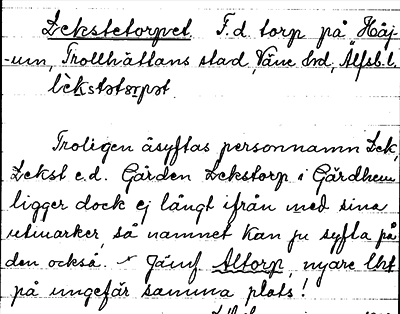 Lekstetorpet. F.d. torp på Håj-
um, Trollhättans stad, Väne hd, Älfsb.l.
lèkstətɔrpət.
Troligen åsyftas personnamn Lek,
Lekst e.d. Gården Lekstorp i Gärdhem
ligger dock ej långt ifrån med sina
utmarker, så namnet kan ju syfta på
den också. Jämf Altorp, nyare
på ungefär samma plats!